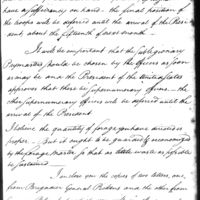 have a sufficiency on hand — the final position of
the troops will be deferred until the arrival of the Presi-
dent, about the fifteenth of next month —
It will be important that the Sub Legionary
Paymasters should be chosen by the officers as soon
as may be and the President of the United States
approves that there be Supernumerary officers — the
other supernumerary officers will be deferred until
the arrival of the President
I believe the quantity of forage you have directed is
proper — But it ought to be guarded & economized
by the forage Master so that as little waste as possible
be sustained —
I enclose you the copies of two letters, one,
from Brigadier General Pickens and the other from